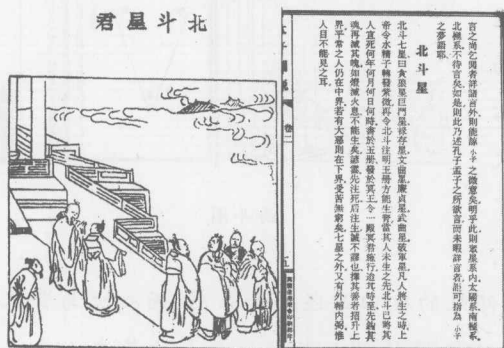 言之尚乞閱者詳諸言外則能餘小子之微意矣明乎此則眾星系內太陽系南極系
北極系不待言矣如是則此乃述孔子孟子之所欲言而未暇詳言者詎可指為小子
之夢語耶
北斗星
北斗七星曰貪狼星巨門星祿存星文曲星廉貞星武曲星破軍星凡人將生之時上
帝令水精子轉發紫微再令北斗注明玉册方能生育當其人未生之先北斗已將其
人宜死何年何月何日何時書於玉册發於冥王令一殿冥君施行迨其時至先鉤其
魂再滅其魄如燈滅火息不能生矣諺云先注死后注生誠不謬也擇其善者招升上
界平常之人仍在中界若有大惡則在下界受苦無窮矣七星之外又有外輔內弼惟
人目不能見之耳
卷二
北斗星君